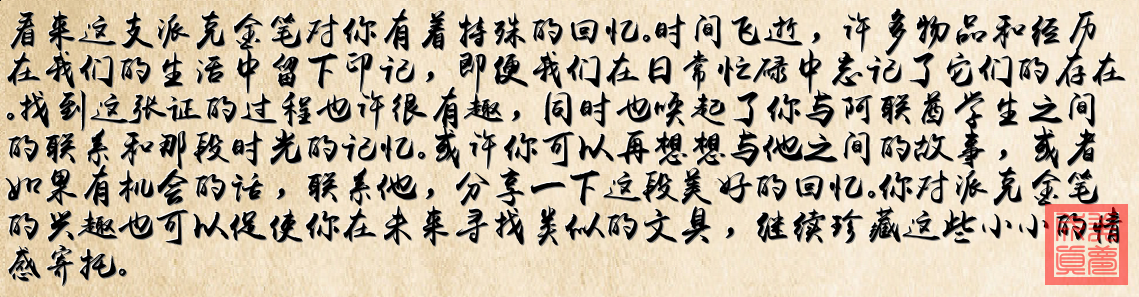 看来这支派克金笔对你有着特殊的回忆。时间飞逝，许多物品和经历
在我们的生活中留下印记，即便我们在日常忙碌中忘记了它们的存在
。找到这张证的过程也许很有趣，同时也唤起了你与阿联酋学生之间
的联系和那段时光的记忆。或许你可以再想想与他之间的故事，或者
如果有机会的话，联系他，分享一下这段美好的回忆。你对派克金笔
的兴趣也可以促使你在未来寻找类似的文具，继续珍藏这些小小的情
感寄托。